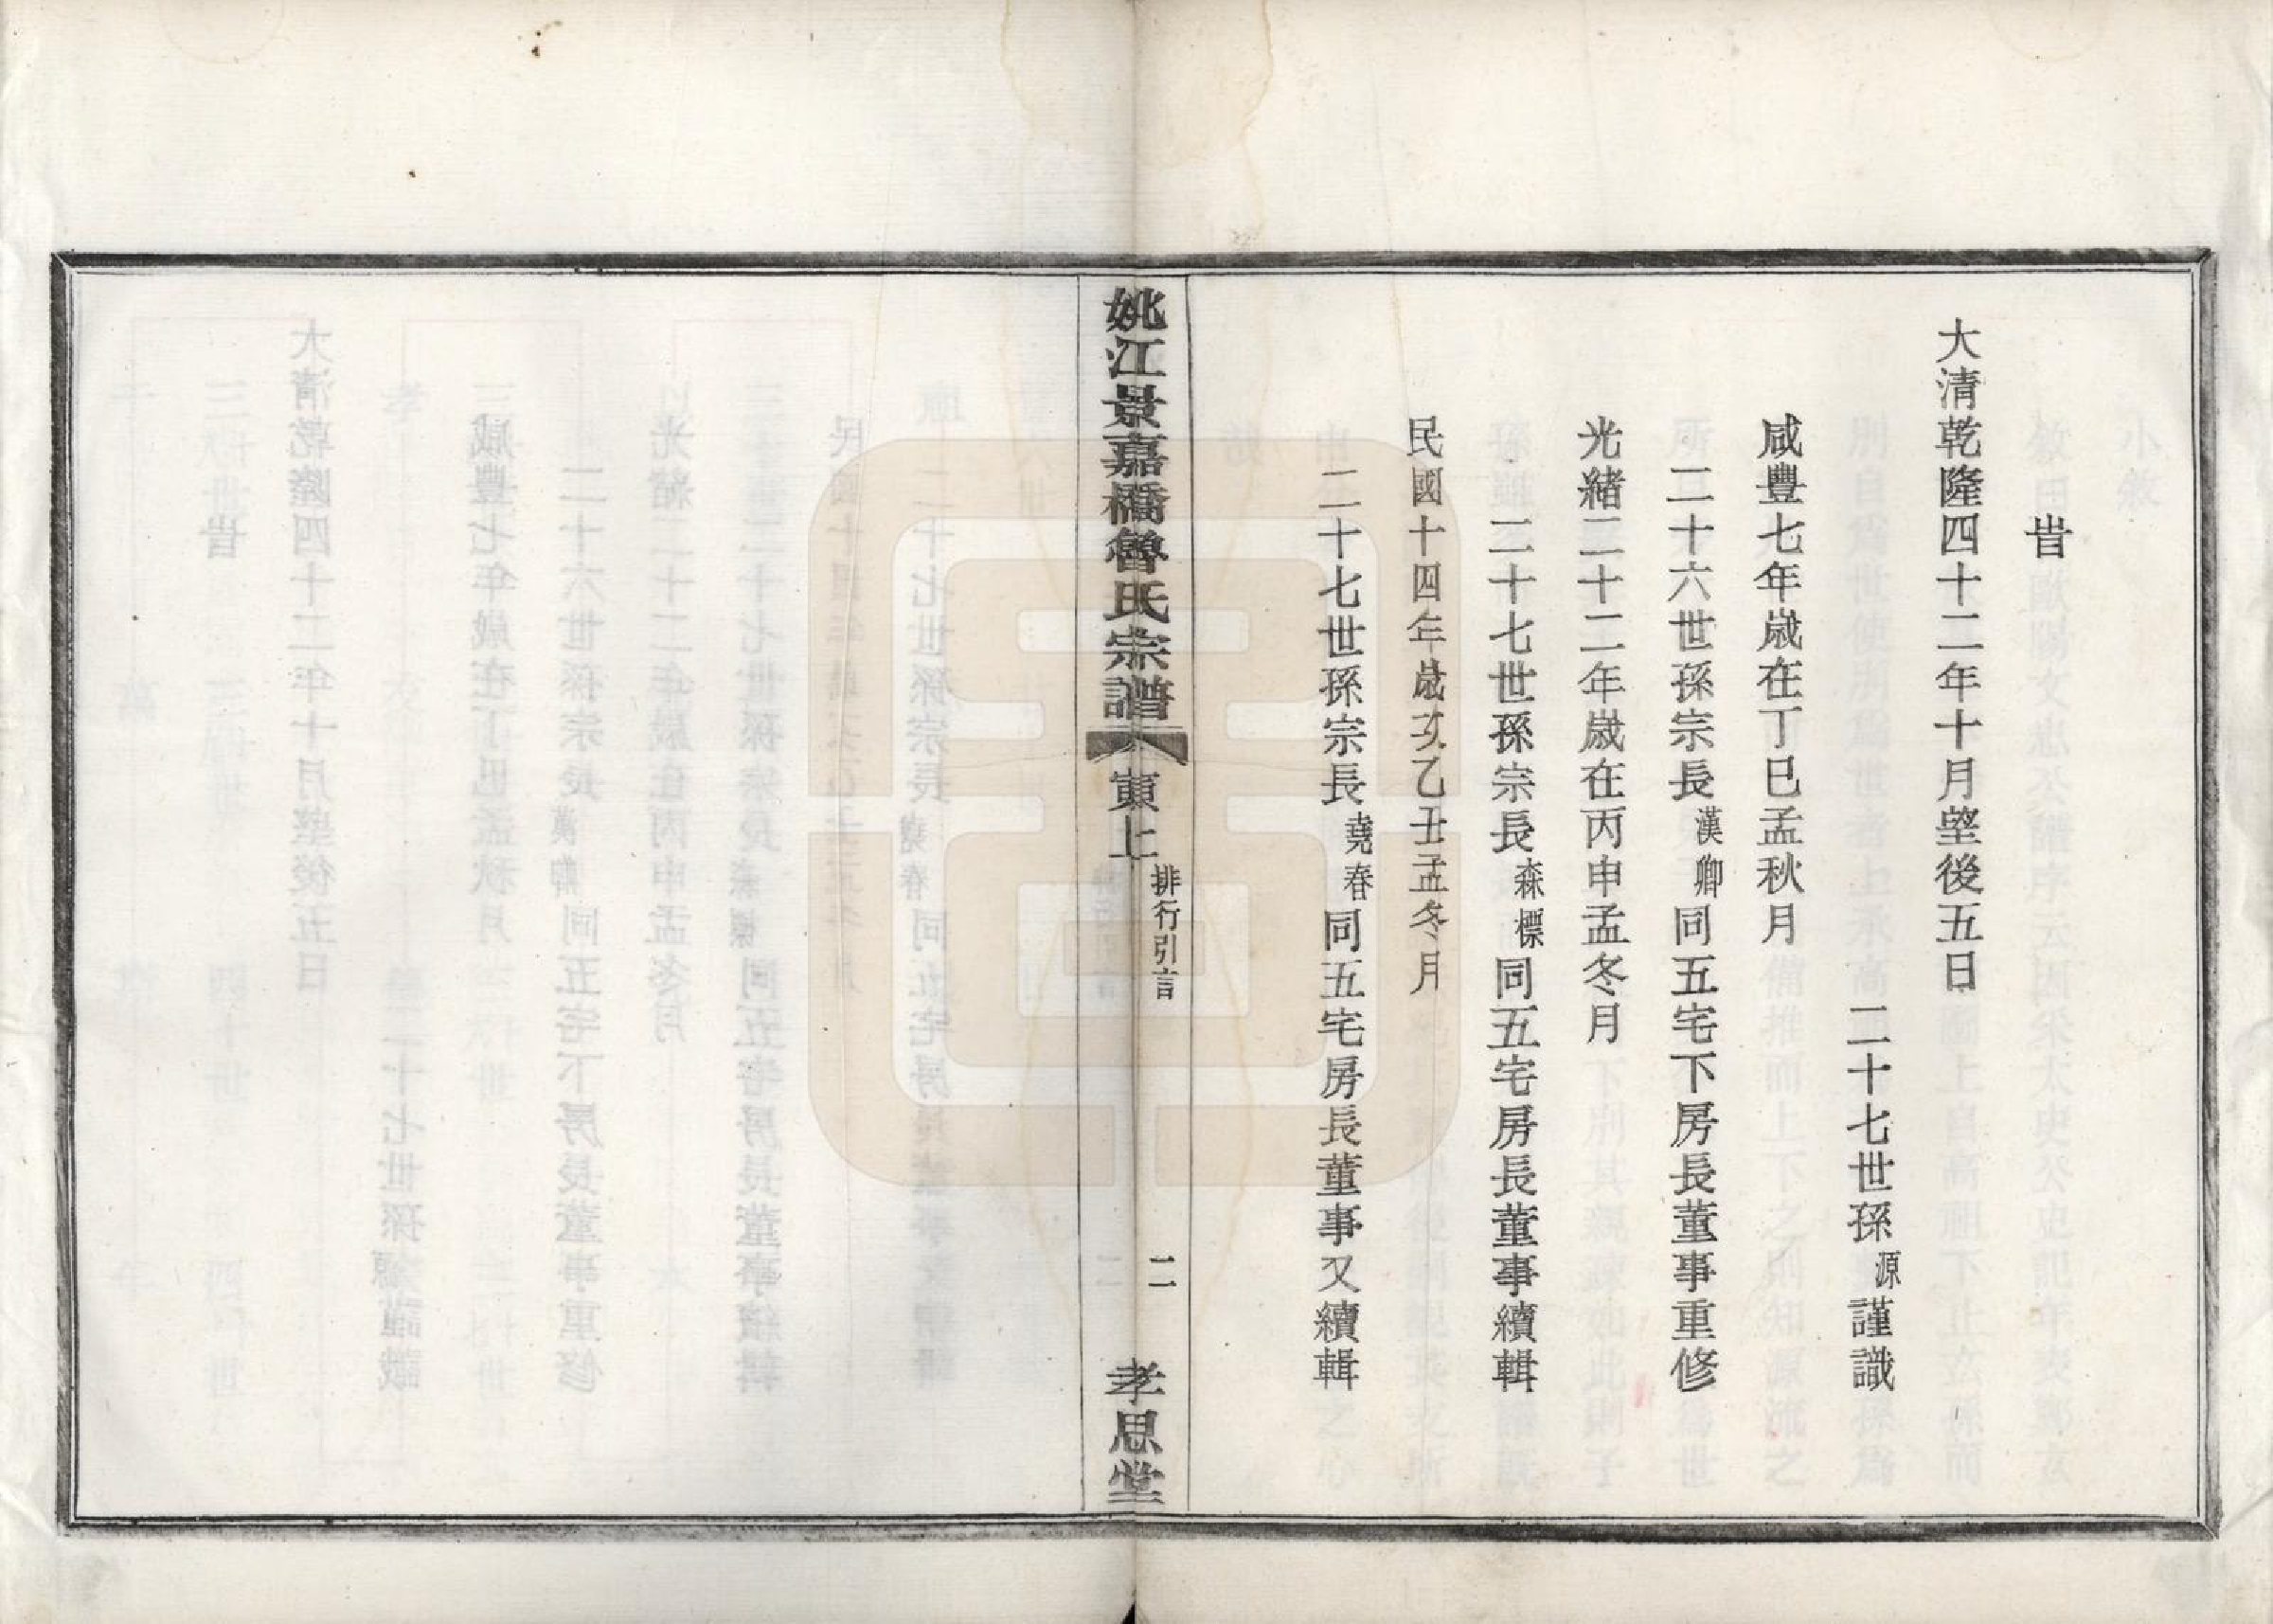 旹
大清乾隆四十二年十月望後五日
二十七世孫源謹識
咸豐七年歲在丁巳孟秋月
二十六世孫宗長漢卿同五宅下房長董事重修
光緒二十二年歲在丙申孟冬月
二十七世孫宗長森標同五宅房長董事續輯
民國十四年歲次乙丑孟冬月
二十七世孫宗長堯春同五宅房長董事又續輯
姚江景嘉橋魯氏宗譜 東上 排行引言 二 孝思堂